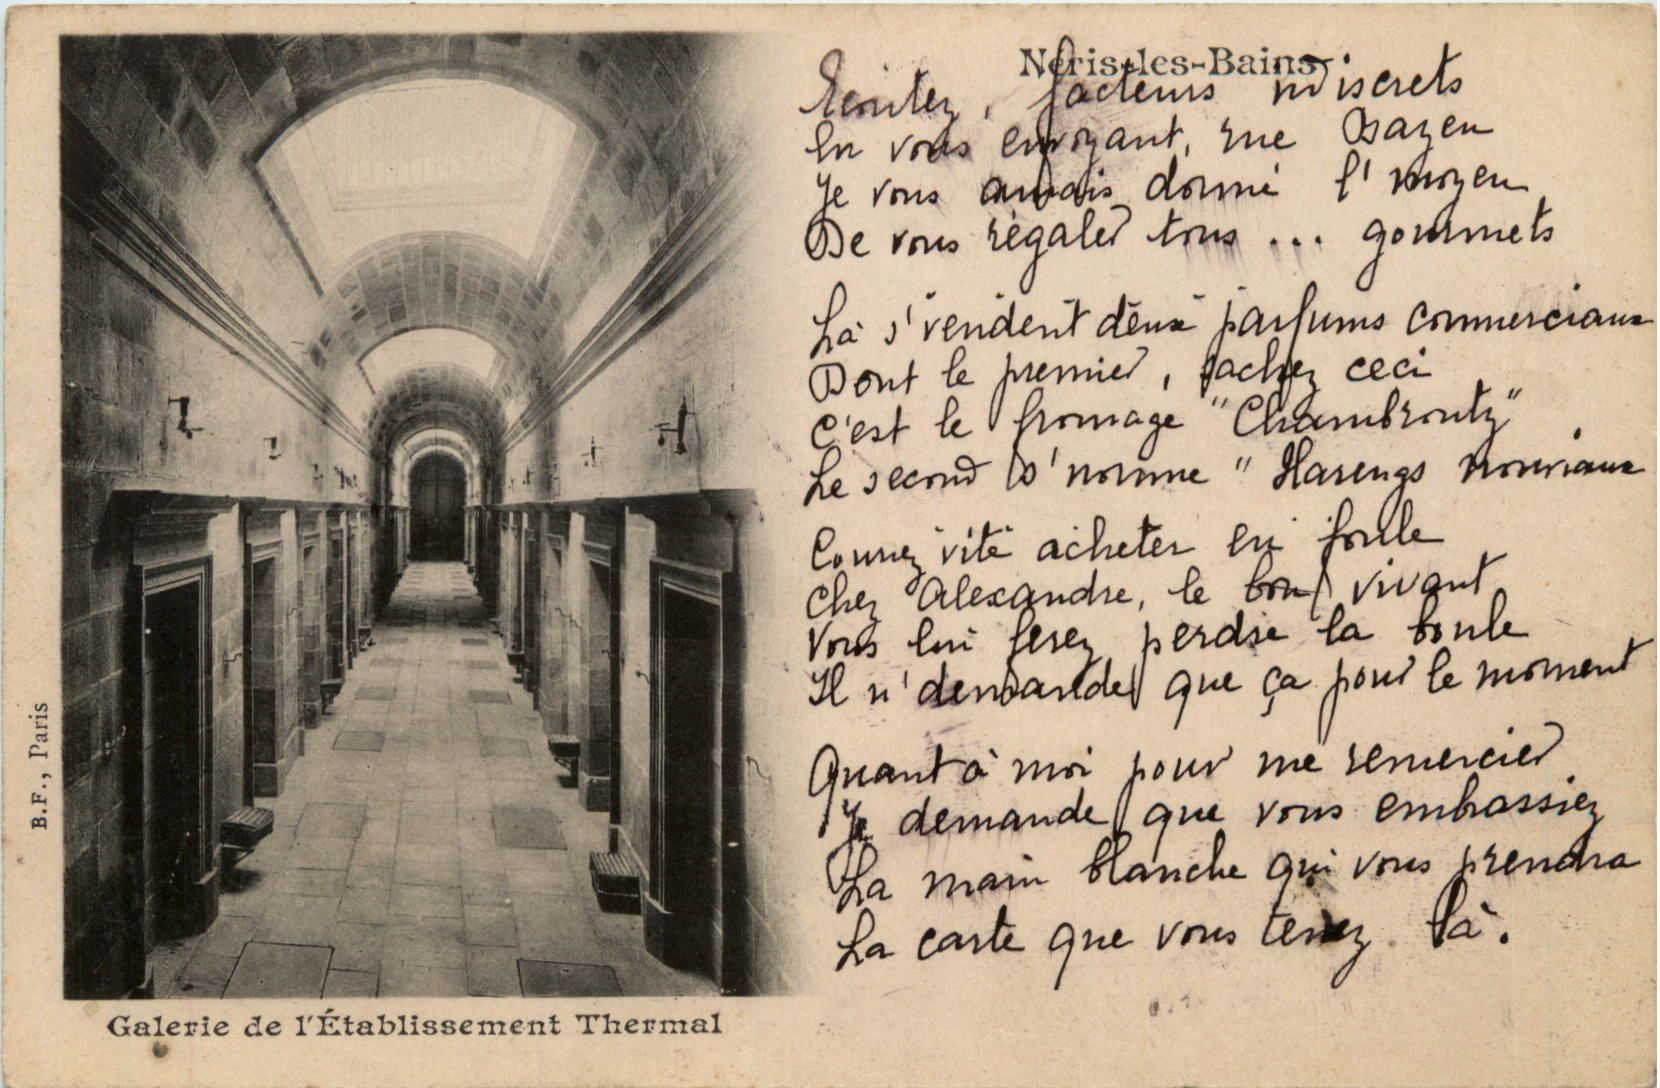 Néris-les-Bains
Ecoutez, facteurs indiscrets
En vous envoyant, rue Bayen
Je vous avais donné l' moyen
De vous régaler tous ... gourmets
Là s'vendent deux parfums commerciaux
Dont le premier, sachez ceci
C'est le fromage "Chambrontz"
Le second s'nomme "Harengs nouviaux
Courez vite acheter en foule
Chez Alexandre, le bon vivant
Vous lui ferez perdre la boule
Il n'demande que ça pour le moment
Quant à moi pour me remercier
Je demande que vous embrassiez
La main blanche qui vous prendra
La carte que vous tenez là.
B.F., Paris
Galerie de l'Établissement Thermal